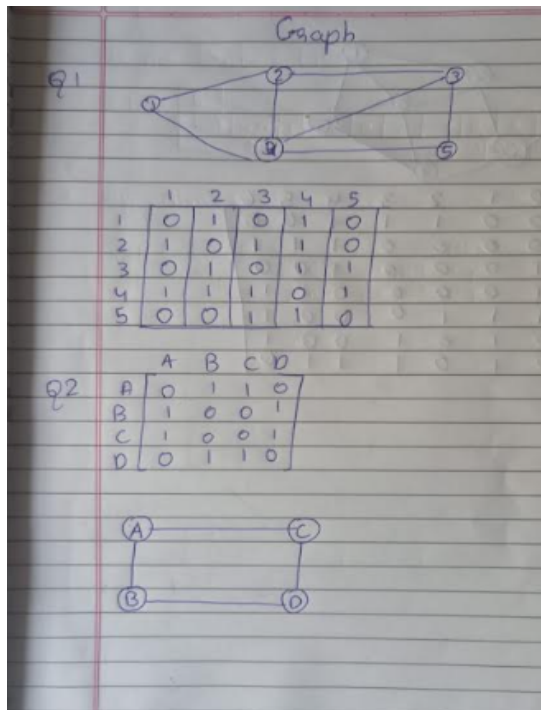 Graph
Q1
2 3
1
4 5
1 2 3 4 5
1 0 1 0 1 0
2 1 0 1 1 0
3 0 1 0 1 1
4 1 1 1 0 1
5 0 0 1 1 0
A B C D
Q2 A 0 1 1 0
B 1 0 0 1
C 1 0 0 1
D 0 1 1 0
A C
B D